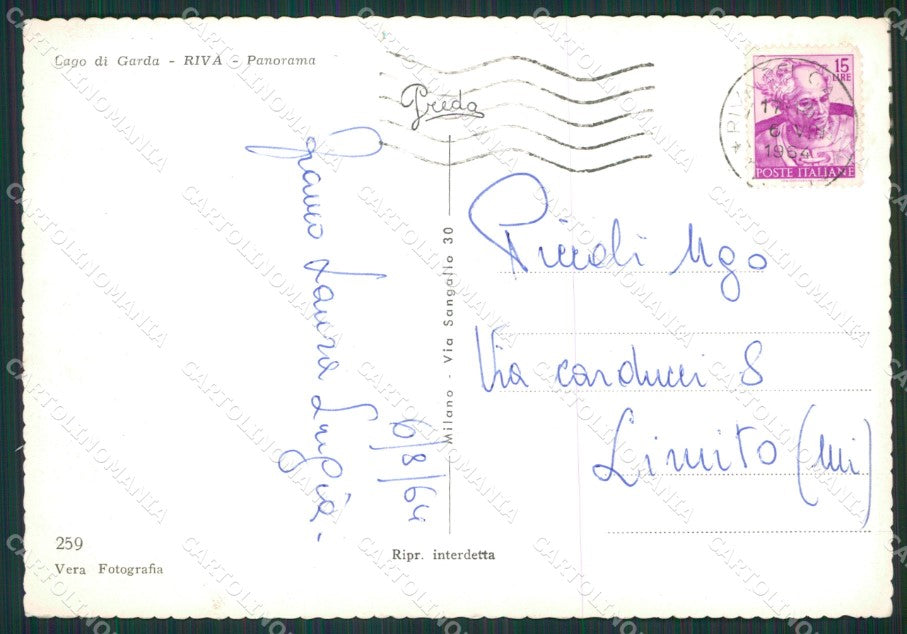 Lago di Garda - RIVA - Panorama
Preda
15 LIRE
POSTE ITALIANE
RIVA
17
6 VIII
1964
Franco Laura Luigia -
6/8/64
Milano - Via Sangallo 30
Piccoli Ugo
Via carducci 8
Limito (Mi)
259
Vera Fotografia
Ripr. interdetta
CARTOLINOMANIA